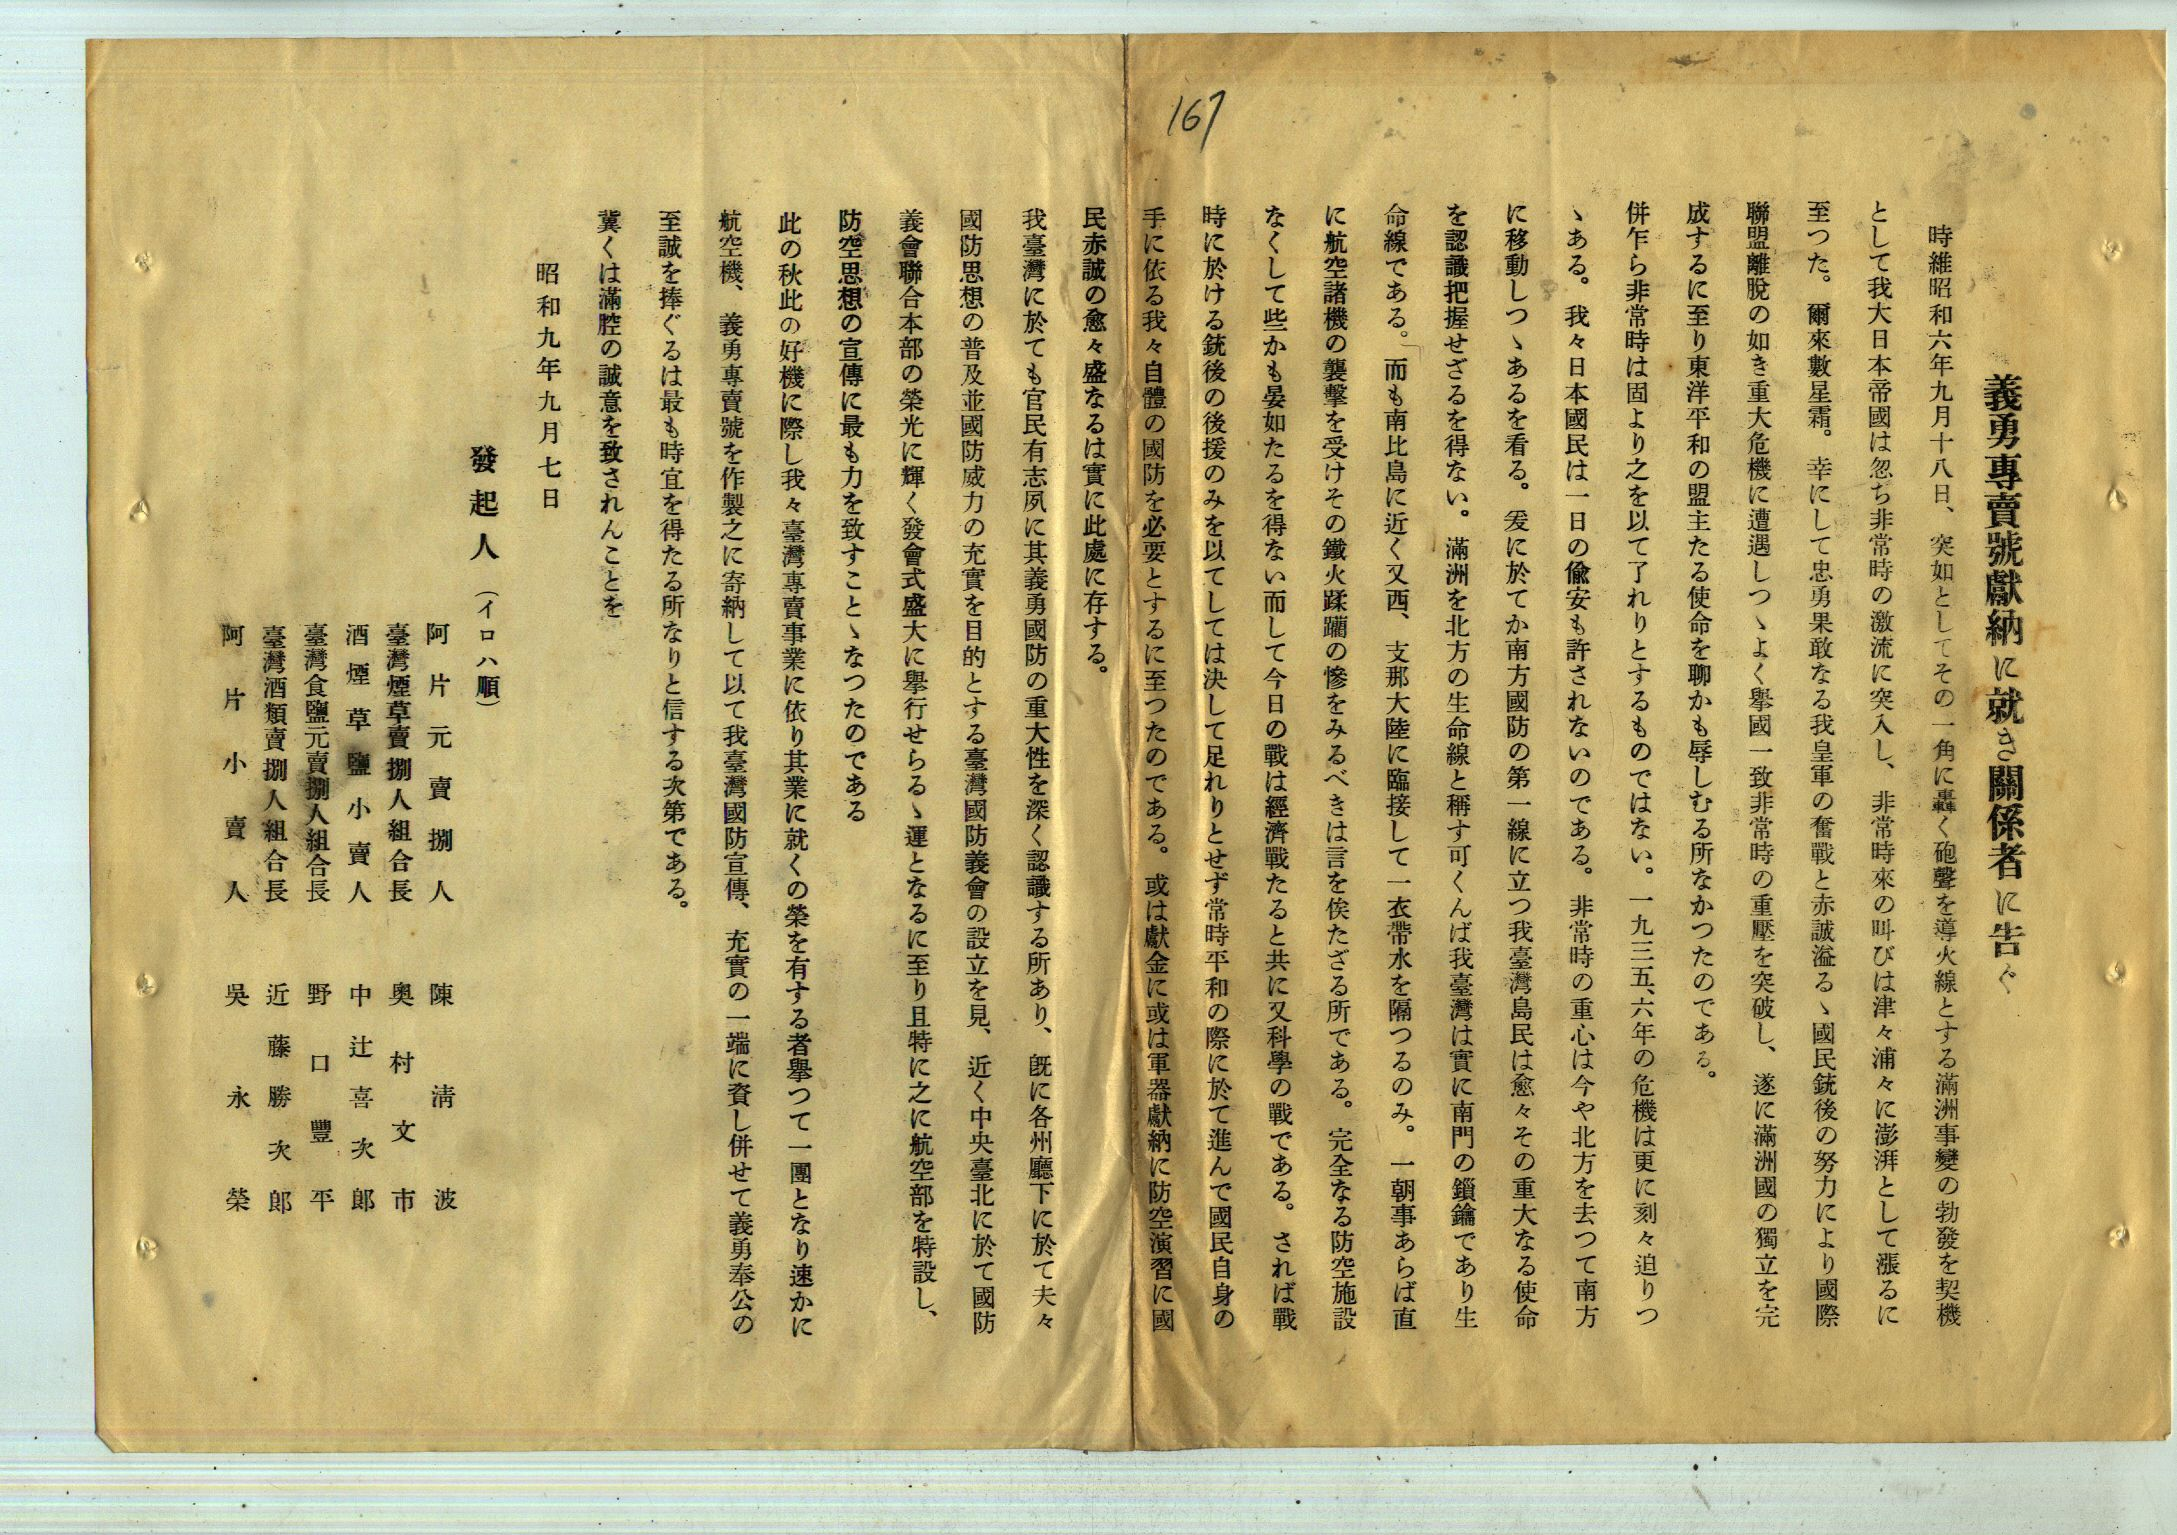 167
義勇專賣號獻納に就き關係者に吿ぐ
時維昭和六年九月十八日、突如としてその一角に轟く砲聲を導火線とする滿洲事變の勃發を契機
として我大日本帝國は忽ち非常時の激流に突入し、非常時來の叫びは津々浦々に澎湃として漲るに
至つた。爾來數星霜。幸にして忠勇果敢なる我皇軍の奮戰と赤誠溢るゝ國民銃後の努力により國際
聯盟離脫の如き重大危機に遭遇しつゝよく擧國一致非常時の重壓を突破し、遂に滿洲國の獨立を完
成するに至り東洋平和の盟主たる使命を聊かも辱しむる所なかつたのである。
併乍ら非常時は固より之を以て了れりとするものではない。一九三五、六年の危機は更に刻々迫りつ
ゝある。我々日本國民は一日の偸安も許されないのである。非常時の重心は今や北方を去つて南方
に移動しつゝあるを看る。爰に於てか南方國防の第一線に立つ我臺灣島民は愈々その重大なる使命
を認識把握せざるを得ない。滿洲を北方の生命線と稱す可くんば我臺灣は實に南門の鎖鑰であり生
命線である。而も南比島に近く又西、支那大陸に臨接して一衣帶水を隔つるのみ。一朝事あらば直
に航空諸機の襲擊を受けその鐵火蹂躪の慘をみるべきは言を俟たざる所である。完全なる防空施設
なくして些かも晏如たるを得ない而して今日の戰は經濟戰たると共に又科學の戰である。されば戰
時に於ける銃後の後援のみを以てしては決して足れりとせず常時平和の際に於て進んで國民自身の
手に依る我々自體の國防を必要とするに至つたのである。或は獻金に或は軍器獻納に防空演習に國
民赤誠の愈々盛なるは實に此處に存する。
我臺灣に於ても官民有志夙に其義勇國防の重大性を深く認識する所あり、旣に各州廳下に於て夫々
國防思想の普及並國防威力の充實を目的とする臺灣國防義會の設立を見、近く中央臺北に於て國防
義會聯合本部の榮光に輝く發會式盛大に擧行せらるゝ運となるに至り且特に之に航空部を特設し、
防空思想の宣傳に最も力を致すことゝなつたのである
此の秋此の好機に際し我々臺灣專賣事業に依り其業に就くの榮を有する者擧つて一團となり速かに
航空機、義勇專賣號を作製之に寄納して以て我臺灣國防宣傳、充實の一端に資し併せて義勇奉公の
至誠を捧ぐるは最も時宜を得たる所なりと信する次第である。
冀くは滿腔の誠意を致されんことを
昭和九年九月七日
發起人（イロハ順）
阿片元賣捌人　陳淸波
臺灣煙草賣捌人組合長　奧村文市
酒煙草鹽小賣人　中辻喜次郞
臺灣食鹽元賣捌人組合長　野口豐平
臺灣酒類賣捌人組合長　近藤勝次郞
阿片小賣人　吳永榮